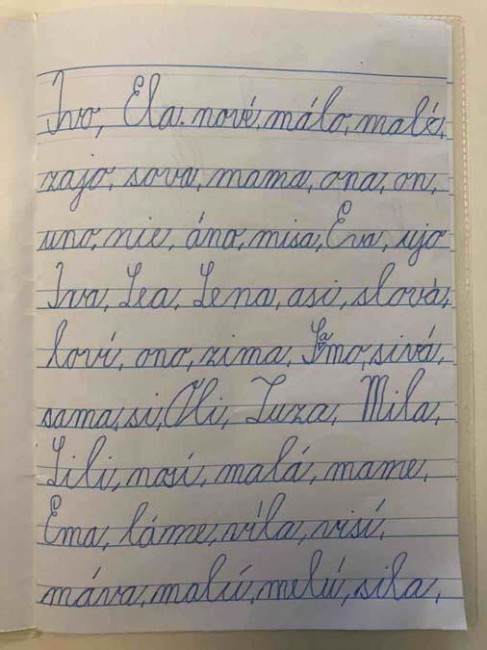 Ivo, Ela, nové, málo, malé,
zajo, sova, mama, ona, on,
uno, nie, áno, misa, Eva, ujo
Iva, Lea, Lena, asi, slová,
loví, ono, zima, sivá,
sama, si, Oli, Zuza, Mila,
Lili, nosí, malá, mame,
Ema, láme, víla, visí,
máva, malú, melú, sila,